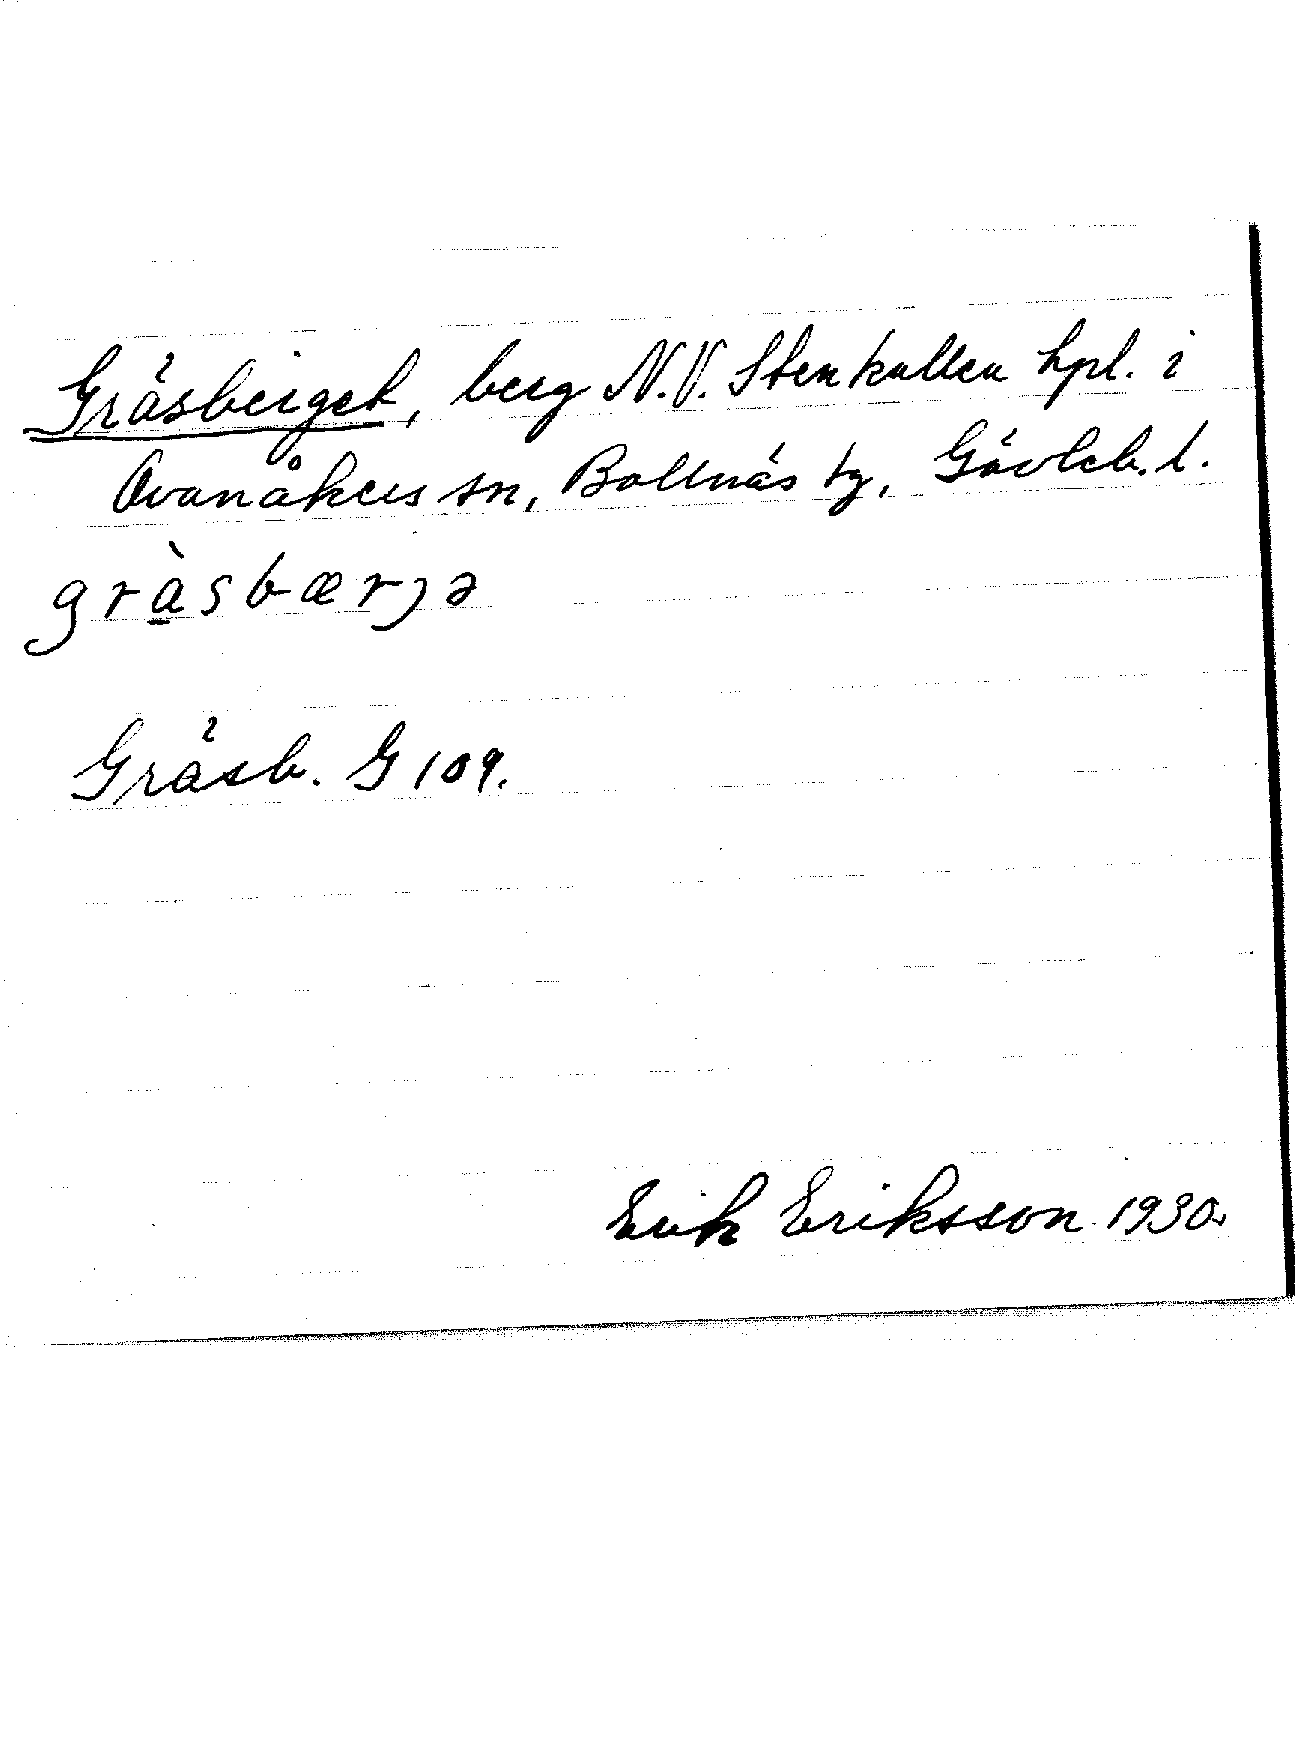 Gräsberget, berg N.V. Stenkullen hpl. i
Ovanåkers sn, Bollnäs tg, Gävleb. l.
gràsbærjə
Gräsb. G 109.
Erik Eriksson 1930.